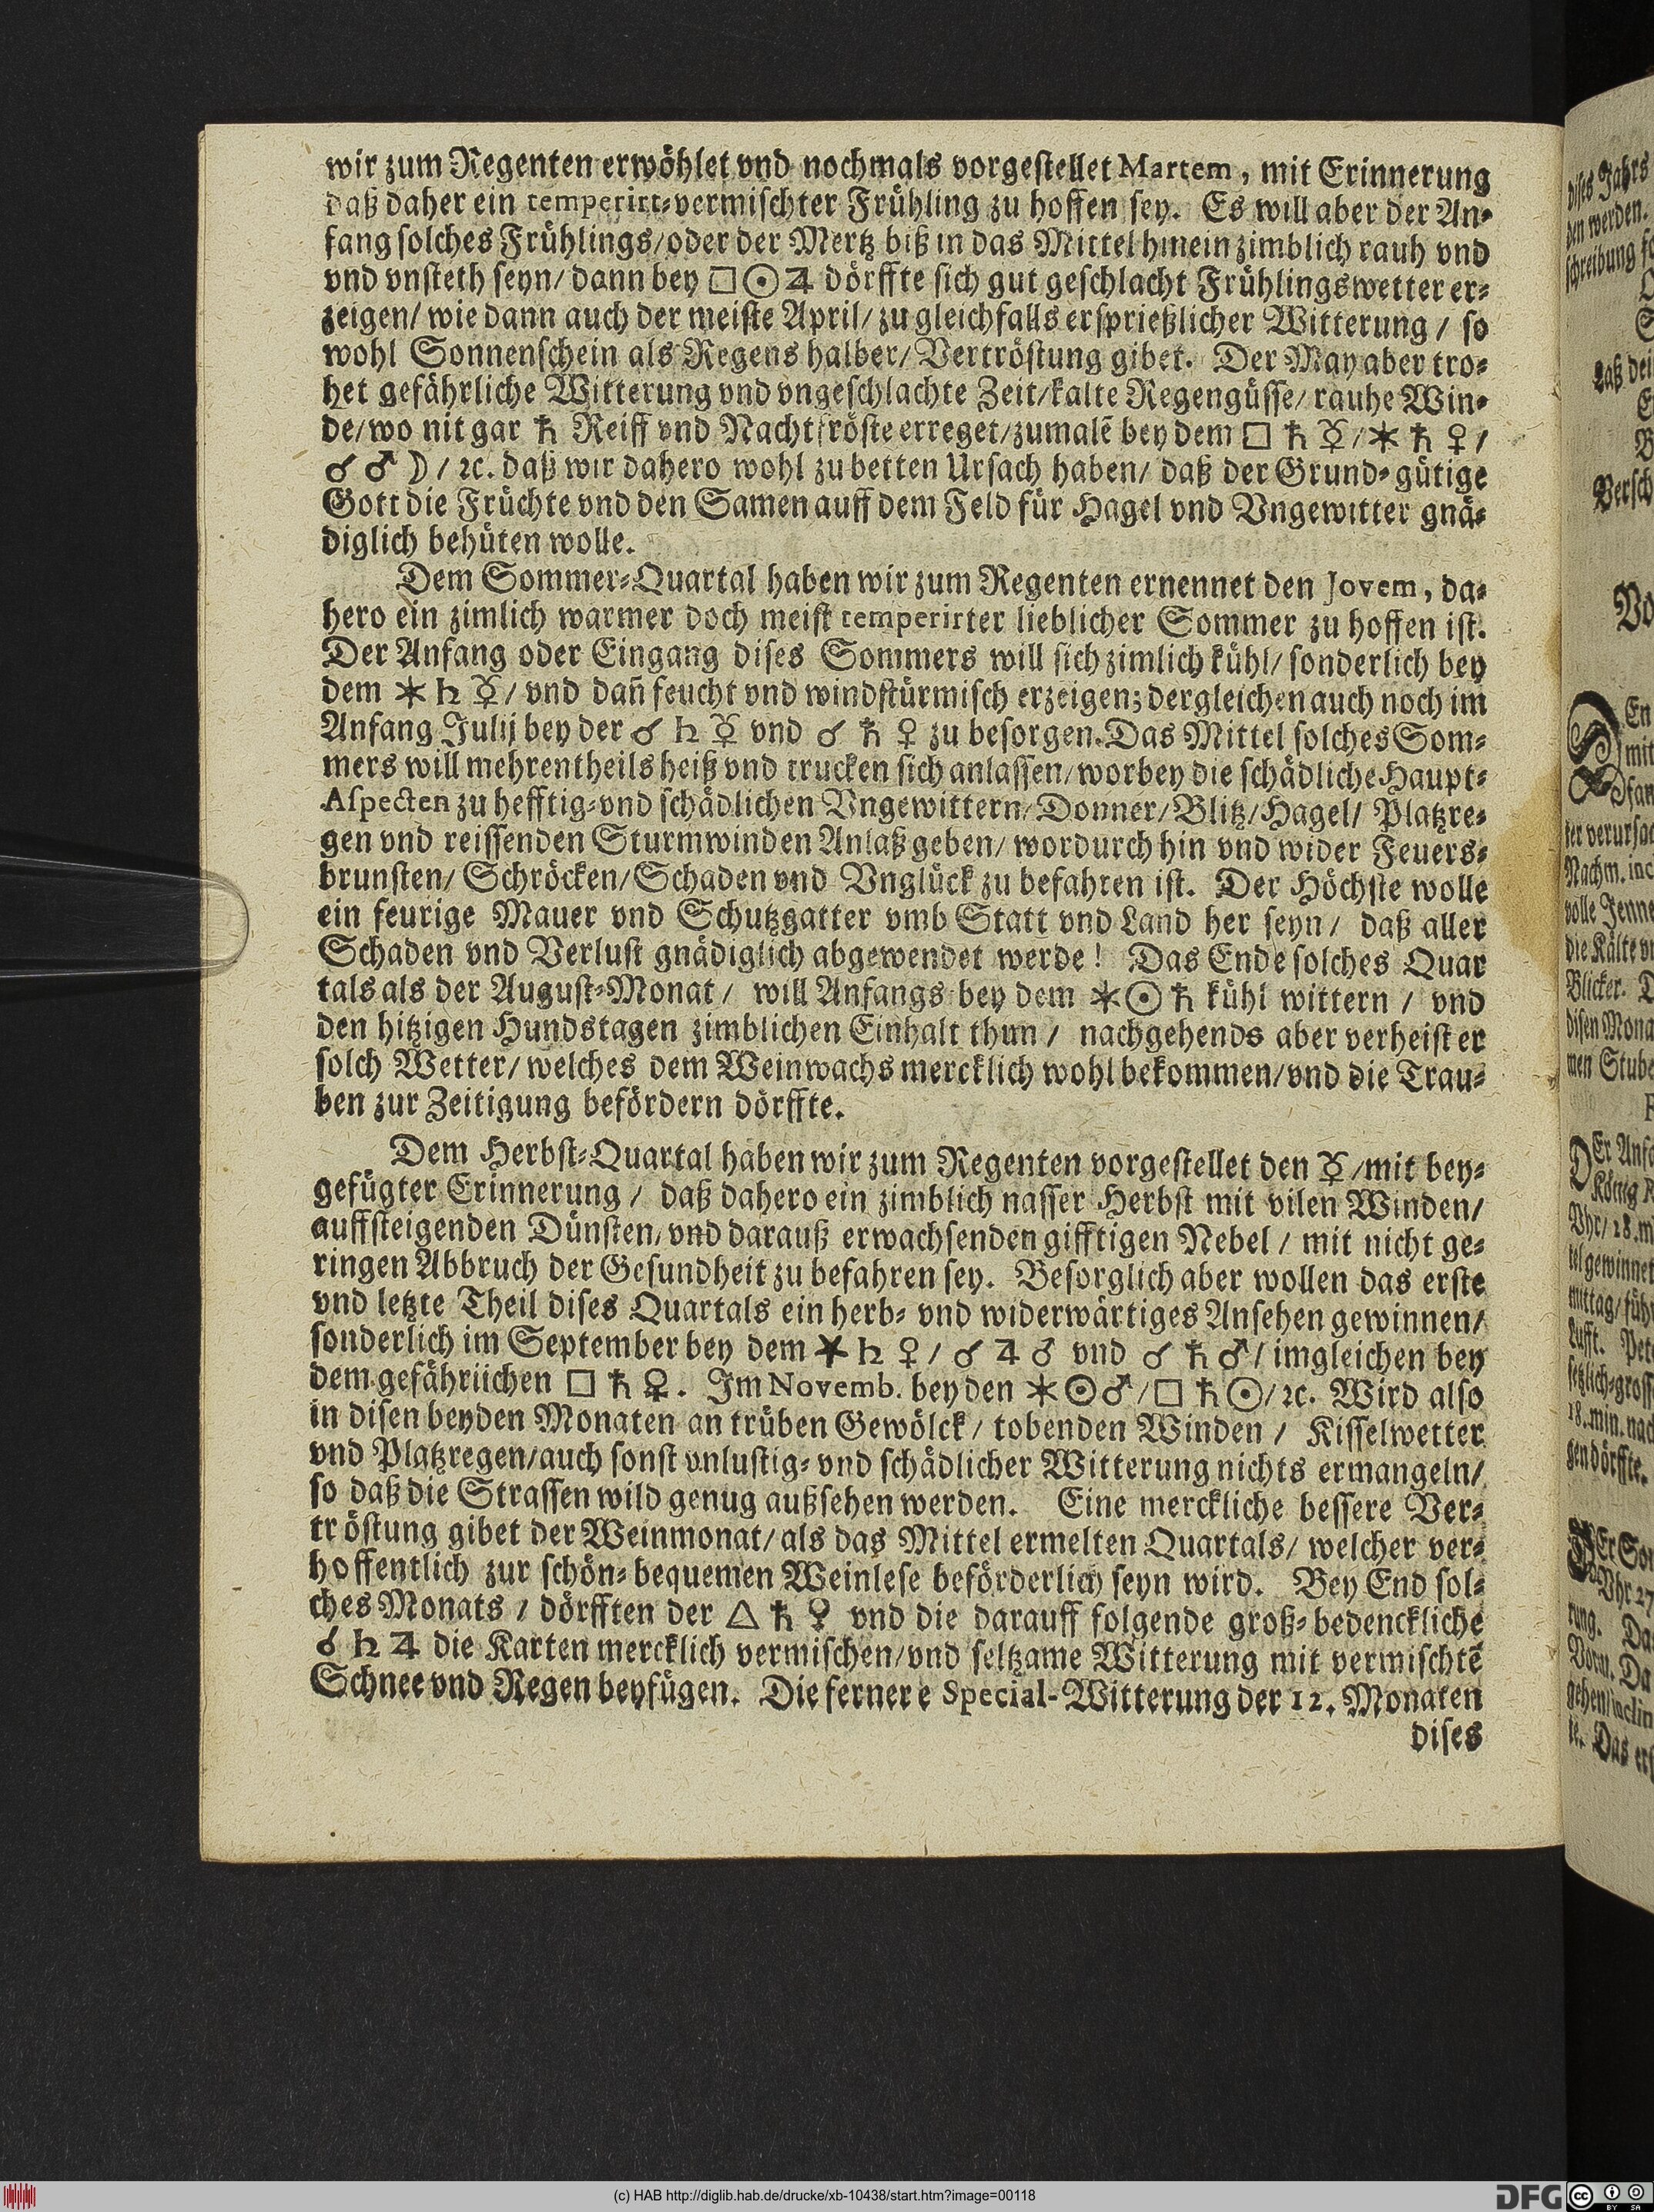 wir zum Regenten erwöhlet vnd nochmals vorgestellet Martem, mit Erinnerung
daß daher ein temperirt-vermischter Frühling zu hoffen sey. Es will aber der An-
fang solches Frühlings/oder der Mertz biß in das Mittel hinein zimblich rauh vnd
vnd vnsteth seyn/ dann bey □ ☉ ♃ dörffte sich gut geschlacht Frühlingswetter er-
zeigen/ wie dann auch der meiste April/ zu gleichfalls ersprießlicher Witterung / so
wohl Sonnenschein als Regens halber/ Vertröstung gibet. Der May aber tro-
het gefährliche Witterung vnd vngeschlachte Zeit/kalte Regengüsse/ rauhe Win-
de/wo nit gar ♄ Reiff vnd Nachtfröste erreget/zumalẽ bey dem □ ♄ ☿/⚹ ♄ ♀ /
☌ ♂ ☽ / ꝛc. daß wir dahero wohl zu betten Ursach haben/ daß der Grund-gütige
Gott die Früchte vnd den Samen auff dem Feld für Hagel vnd Vngewitter gnä-
diglich behüten wolle.
Dem Sommer-Quartal haben wir zum Regenten ernennet den Jovem, da-
hero ein zimlich warmer doch meist temperirter lieblicher Sommer zu hoffen ist.
Der Anfang oder Eingang dises Sommers will sich zimlich kühl/ sonderlich bey
dem ⚹ ♄ ☿ / vnd dañ feucht vnd windstürmisch erzeigen; dergleichen auch noch im
Anfang Julij bey der ☌ ♄ ☿ vnd ☌ ♄ ♀ zu besorgen. Das Mittel solches Som-
mers will mehrentheils heiß vnd trucken sich anlassen/ worbey die schädliche Haupt-
Aspecten zu hefftig-vnd schädlichen Vngewittern/ Donner/ Blitz/ Hagel/ Platzre-
gen vnd reissenden Sturmwinden Anlaß geben/ wordurch hin vnd wider Feuers-
brunsten/ Schröcken/ Schaden vnd Vnglück zu befahren ist. Der Höchste wolle
ein feurige Mauer vnd Schutzgatter vmb Statt vnd Land her seyn / daß aller
Schaden vnd Verlust gnädiglich abgewendet werde! Das Ende solches Quar
tals als der August-Monat / will Anfangs bey dem ⚹ ☉ ♄ kühl wittern / vnd
den hitzigen Hundstagen zimblichen Einhalt thun / nachgehends aber verheist er
solch Wetter/ welches dem Weinwachs mercklich wohl bekommen/vnd die Trau-
ben zur Zeitigung befördern dörffte.
Dem Herbst-Quartal haben wir zum Regenten vorgestellet den ☿ /mit bey-
gefügter Erinnerung / daß dahero ein zimblich nasser Herbst mit vilen Winden/
auffsteigenden Dünsten/ vnd darauß erwachsenden gifftigen Nebel / mit nicht ge-
ringen Abbruch der Gesundheit zu befahren sey. Besorglich aber wollen das erste
vnd letzte Theil dises Quartals ein herb- vnd widerwärtiges Ansehen gewinnen/
sonderlich im September bey dem ⚹ ♄ ♀ / ☌ ♃ ♂ vnd ☌ ♄ ♂ / imgleichen bey
dem gefähriichen □ ♄ ♀. Im Novemb. bey den ⚹ ☉ ♂ /□ ♄ ☉/ ꝛc. Wird also
in disen beyden Monaten an trüben Gewölck / tobenden Winden / Kisselwetter
vnd Platzregen/auch sonst vnlustig- vnd schädlicher Witterung nichts ermangeln/
so daß die Strassen wild genug außsehen werden. Eine merckliche bessere Ver-
tröstung gibet der Weinmonat/ als das Mittel ermelten Quartals/ welcher ver-
hoffentlich zur schön-bequemen Weinlese beförderlich seyn wird. Bey End sol-
ches Monats / dörfften der △ ♄ ♀ vnd die darauff folgende groß-bedenckliche
☌ ♄ ♃ die Karten mercklich vermischen/vnd seltzame Witterung mit vermischtẽ
Schnee vnd Regen beyfügen. Die fernere Special-Witterung der 12. Monaten
dises
(c) HAB http://diglib.hab.de/drucke/xb-10438/start.htm?image=00118
DFG
cc BY SA